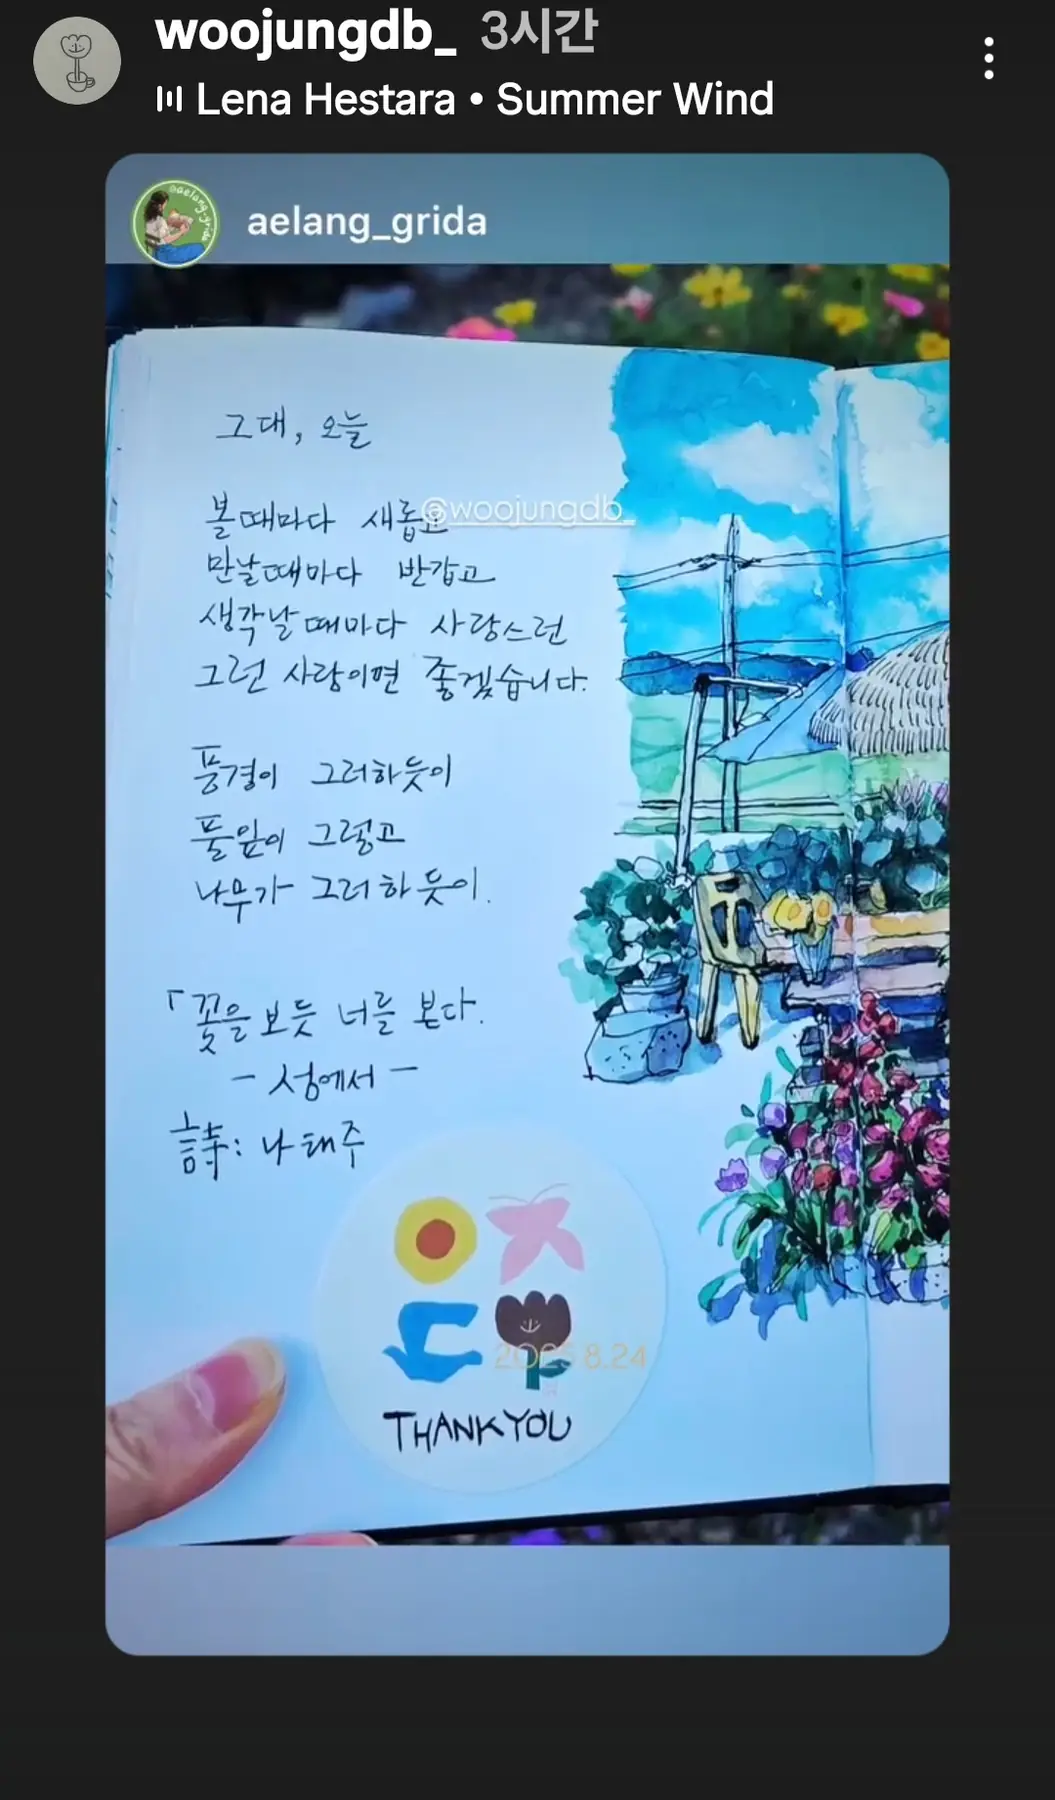 woojungdb_ 3시간
Lena Hestara • Summer Wind
aelang_grida
@aelang.grida
그대, 오늘
@woojungdb_
볼때마다 새롭고
만날때마다 반갑고
생각날때마다 사랑스런
그런 사람이면 좋겠습니다.
풍경이 그러하듯이
풀잎이 그렇고
나무가 그러하듯이.
「꽃을 보듯 너를 본다.
- 섬에서 -
詩: 나태주
2025 8.24
THANK YOU